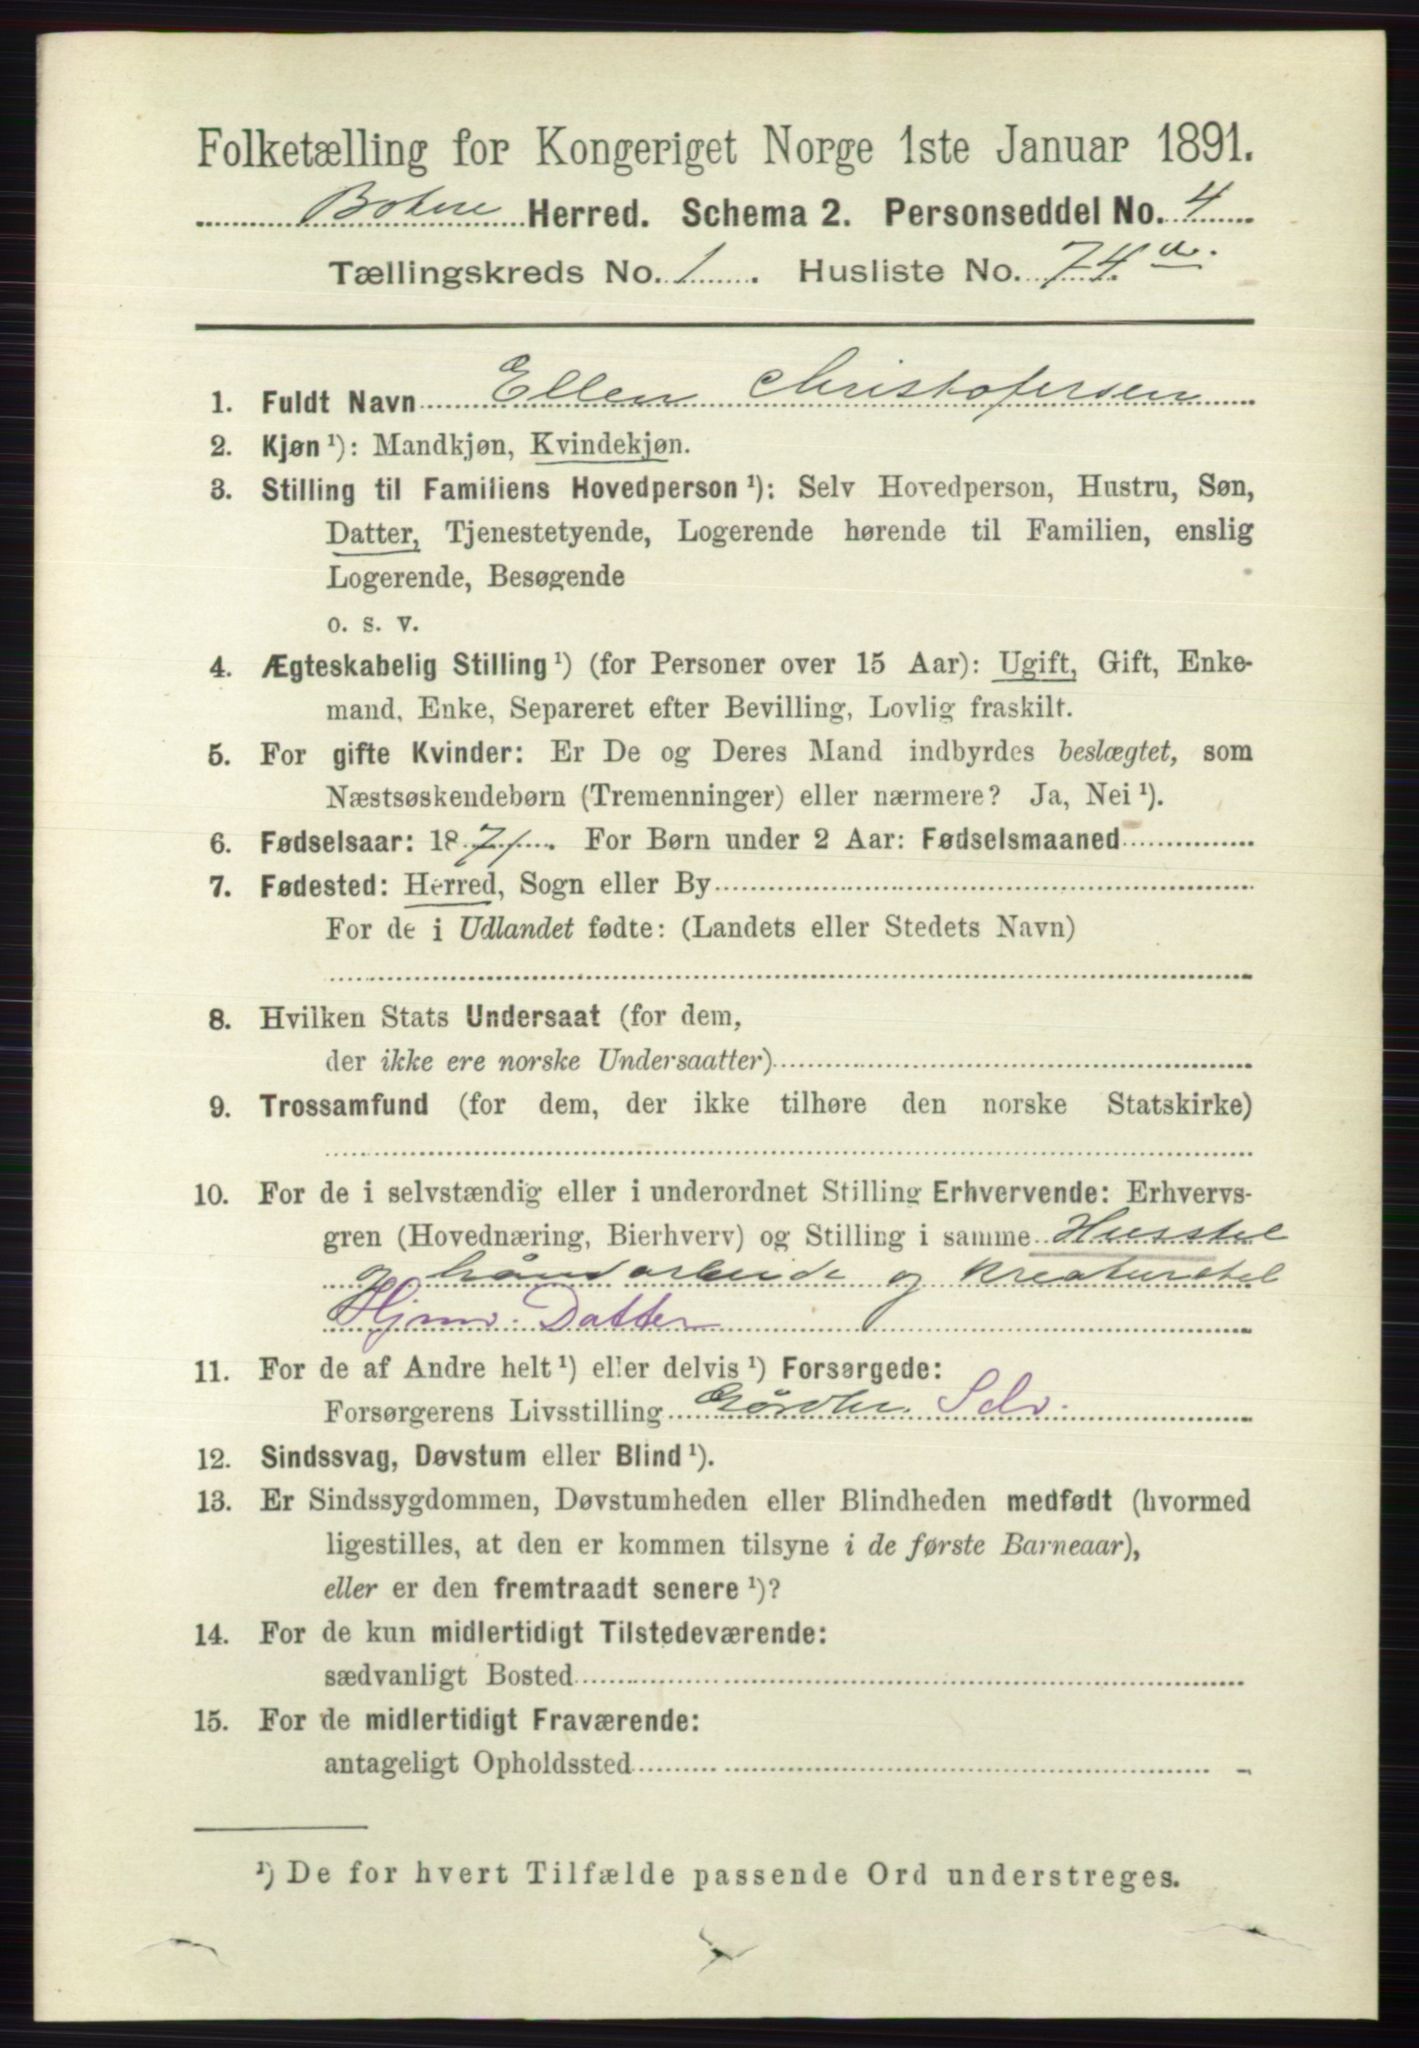 Folketælling for Kongeriget Norge 1ste Januar 1891.
Botne Herred. Schema 2. Personseddel No. 4
Tællingskreds No. 1. Husliste No. 74 a.
1. Fuldt Navn Ellen Christofersen
2. Kjøn ¹): Mandkjøn, Kvindekjøn.
3. Stilling til Familiens Hovedperson ¹): Selv Hovedperson, Hustru, Søn,
Datter, Tjenestetyende, Logerende hørende til Familien, enslig
Logerende, Besøgende
o. s. v.
4. Ægteskabelig Stilling ¹) (for Personer over 15 Aar): Ugift, Gift, Enke-
mand, Enke, Separeret efter Bevilling, Lovlig fraskilt.
5. For gifte Kvinder: Er De og Deres Mand indbyrdes beslægtet, som
Næstsøskendebørn (Tremenninger) eller nærmere? Ja, Nei ¹).
6. Fødselsaar: 1871. For Børn under 2 Aar: Fødselsmaaned
7. Fødested: Herred, Sogn eller By
For de i Udlandet fødte: (Landets eller Stedets Navn)
8. Hvilken Stats Undersaat (for dem,
der ikke ere norske Undersaatter)
9. Trossamfund (for dem, der ikke tilhøre den norske Statskirke)
10. For de i selvstændig eller i underordnet Stilling Erhvervende: Erhvervs-
gren (Hovednæring, Bierhverv) og Stilling i samme Husstel
og håndarbeide og kreaturstel
Hjmv. Datter
11. For de af Andre helt ¹) eller delvis ¹) Forsørgede:
Forsørgerens Livsstilling Selv.
12. Sindssvag, Døvstum eller Blind ¹).
13. Er Sindssygdommen, Døvstumheden eller Blindheden medfødt (hvormed
ligestilles, at den er kommen tilsyne i de første Barneaar),
eller er den fremtraadt senere ¹)?
14. For de kun midlertidigt Tilstedeværende:
sædvanligt Bosted
15. For de midlertidigt Fraværende:
antageligt Opholdssted
¹) De for hvert Tilfælde passende Ord understreges.